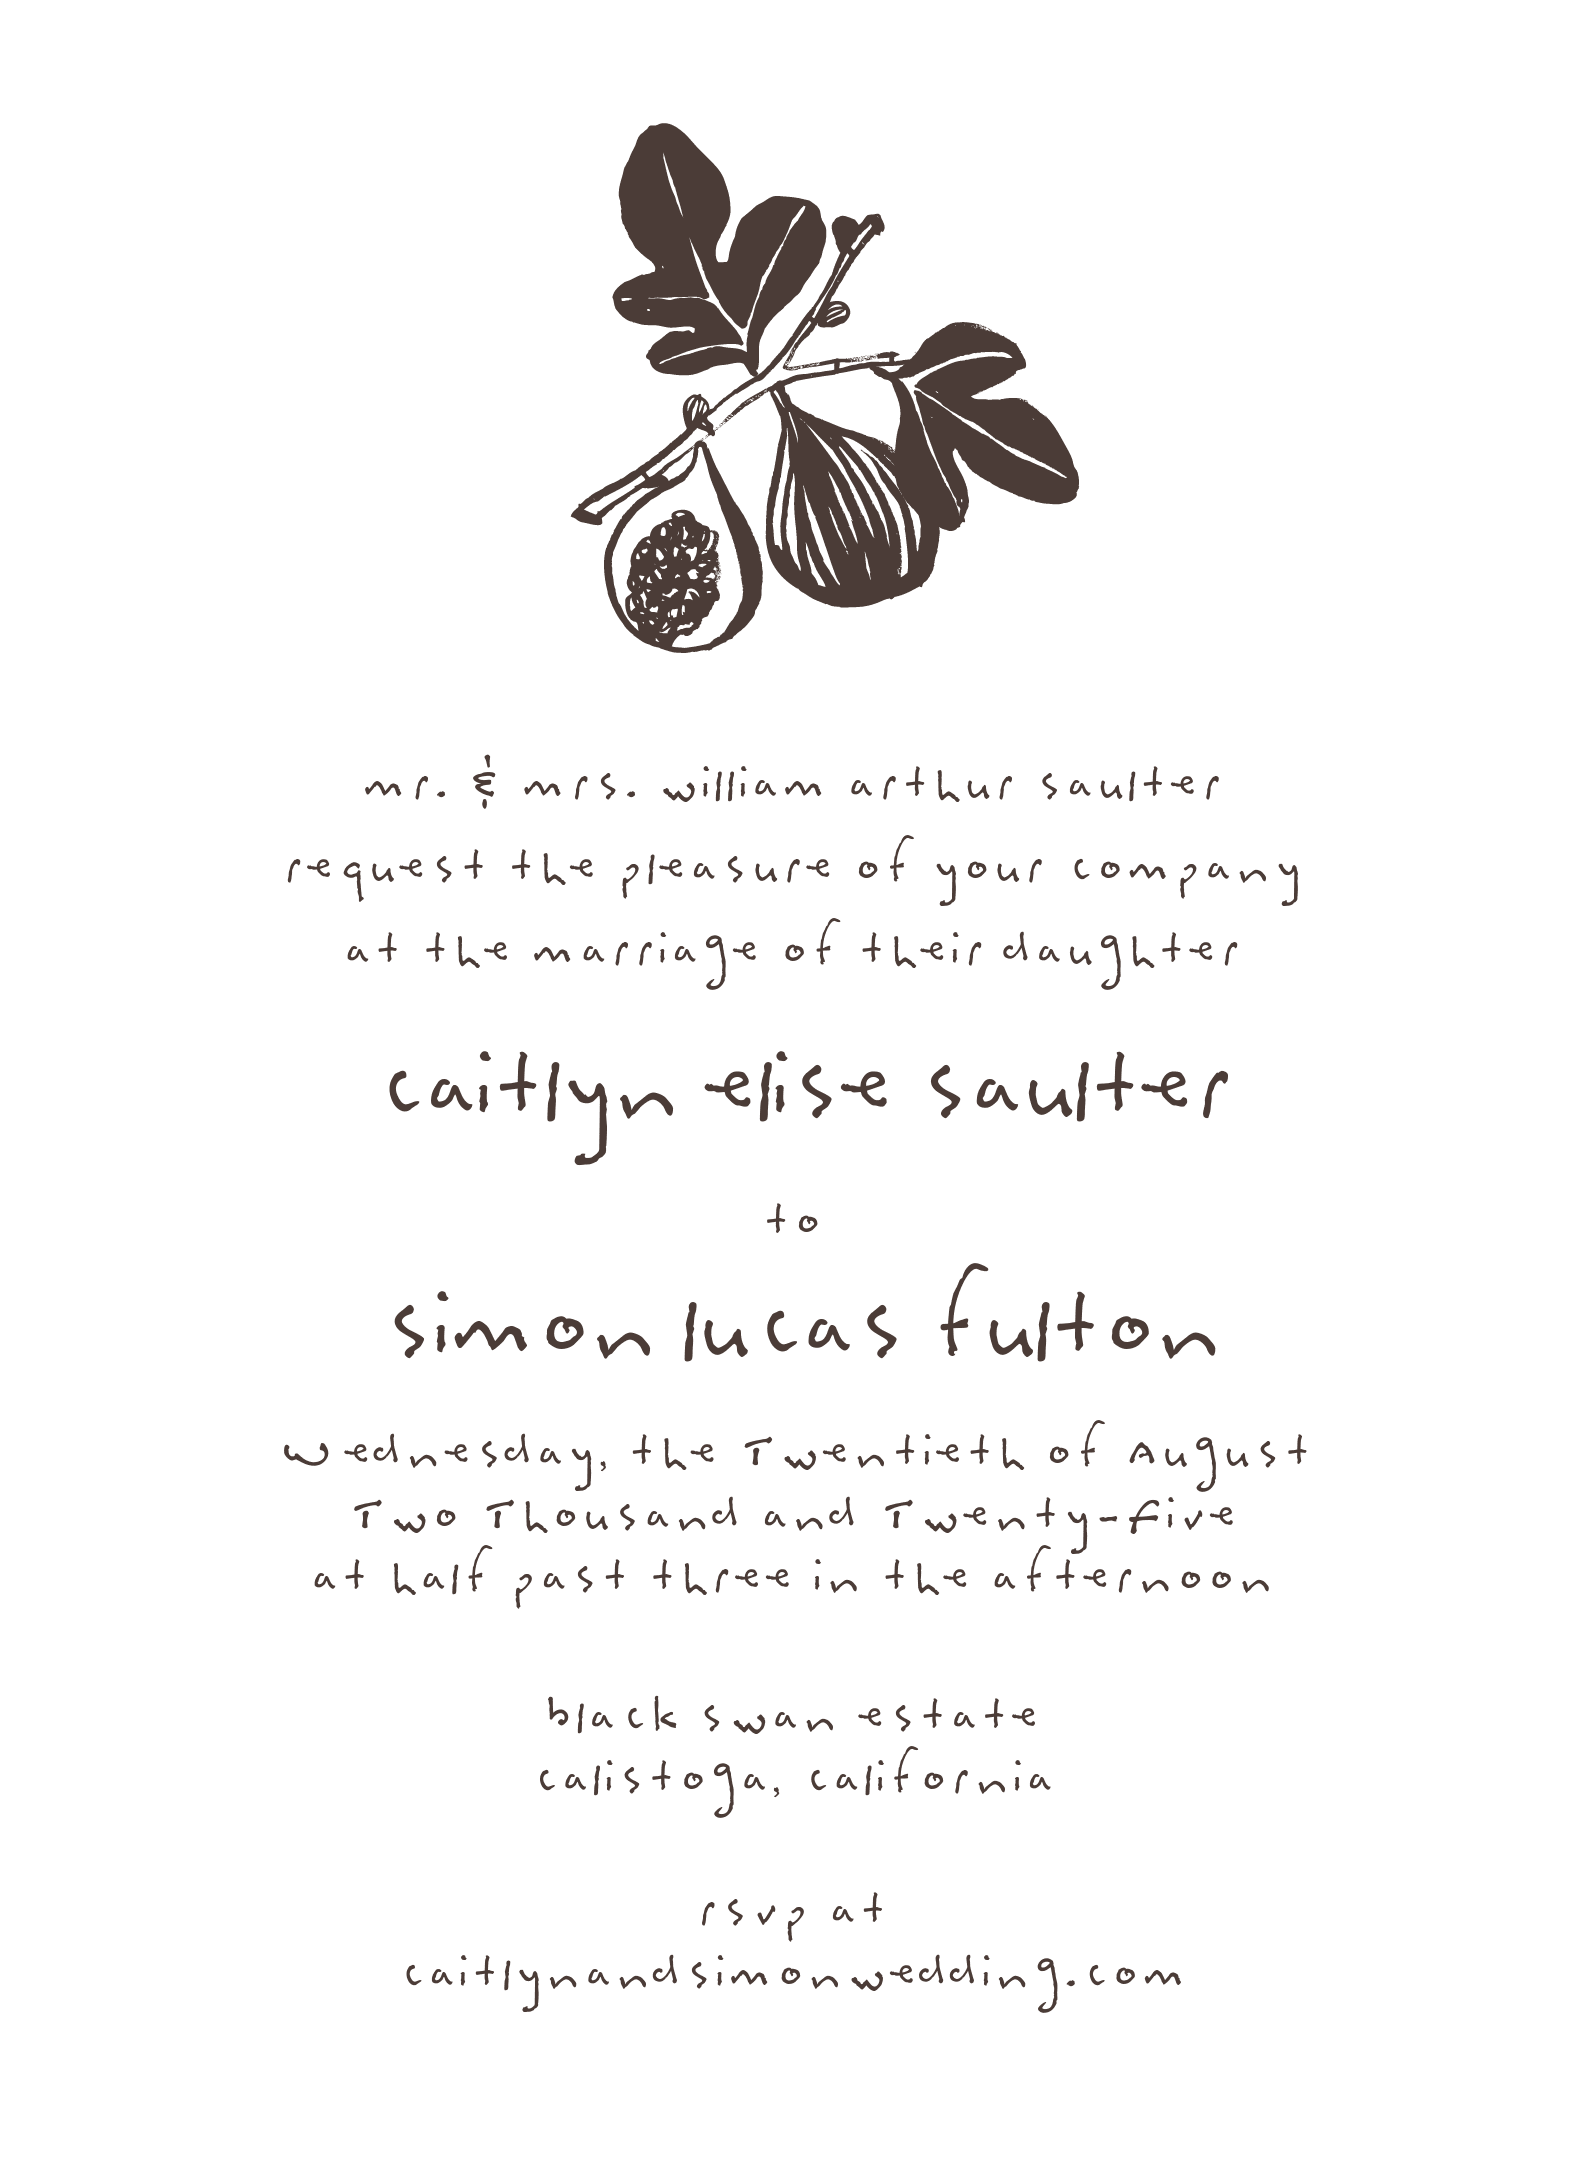 mr. & mrs. william arthur saulter
request the pleasure of your company
at the marriage of their daughter
caitlyn elise saulter
to
simon lucas fulton
Wednesday, the Twentieth of August
Two Thousand and Twenty-Five
at half past three in the afternoon
black swan estate
calistoga, california
rsvp at
caitlynandsimonwedding.com